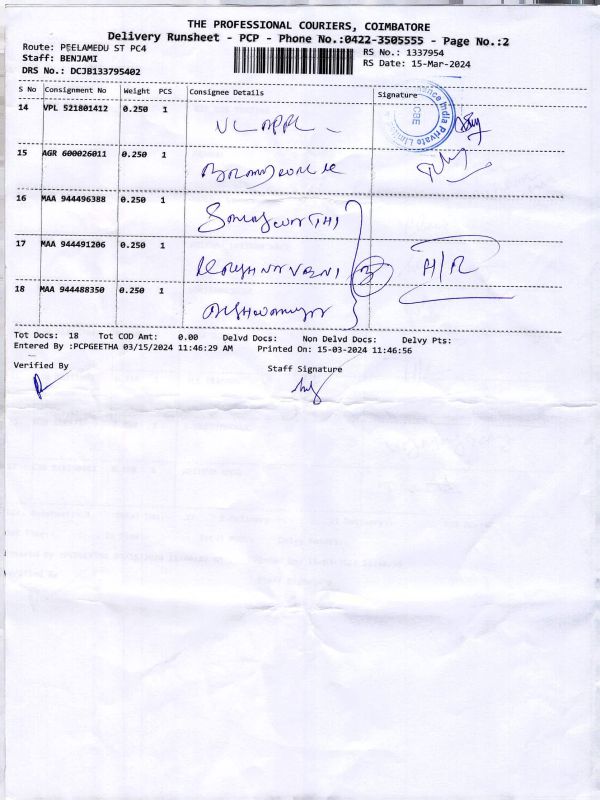 THE PROFESSIONAL COURIERS, COIMBATORE
Delivery Runsheet - PCP - Phone No.:0422-3505555 - Page No.:2
Route: PEELAMEDU ST PC4
RS No.: 1337954
Staff: BENJAMI
RS Date: 15-Mar-2024
DRS No.: DCJB133795402
S No Consignment No Weight PCS Consignee Details Signature
14 VPL 521801412 0.250 1
15 AGR 600026011 0.250 1
16 MAA 944496388 0.250 1
17 MAA 944491206 0.250 1 A/R
18 MAA 944488350 0.250 1
India Private Limited
CBE
Tot Docs: 18 Tot COD Amt: 0.00 Delvd Docs: Non Delvd Docs: Delvy Pts:
Entered By :PCPGEETHA 03/15/2024 11:46:29 AM Printed On: 15-03-2024 11:46:56
Verified By Staff Signature